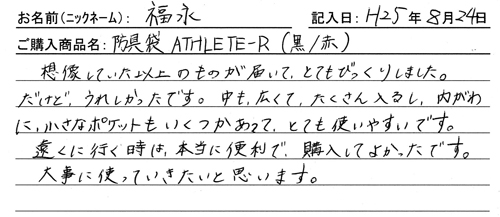 お名前(ニックネーム): 福永 記入日: H25年8月24日
ご購入商品名: 防具袋 ATHLETE-R (黒/赤)
想像していた以上のものが届いて、とてもびっくりしました。
だけど、うれしかったです。中も、広くて、たくさん入るし、内がわ
に、小さなポケットもいくつかあって、とても使いやすいです。
遠くに行く時は、本当に便利で、購入してよかったです。
大事に使っていきたいと思います。